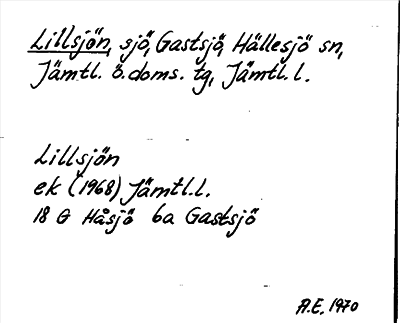 Lillsjön, sjö, Gastsjö, Hällesjö sn,
Jämtl. ö. doms. tg, Jämtl. l.
Lillsjön
ek (1968) Jämtl.l.
18 G Håsjö 6a Gastsjö
A.E. 1970